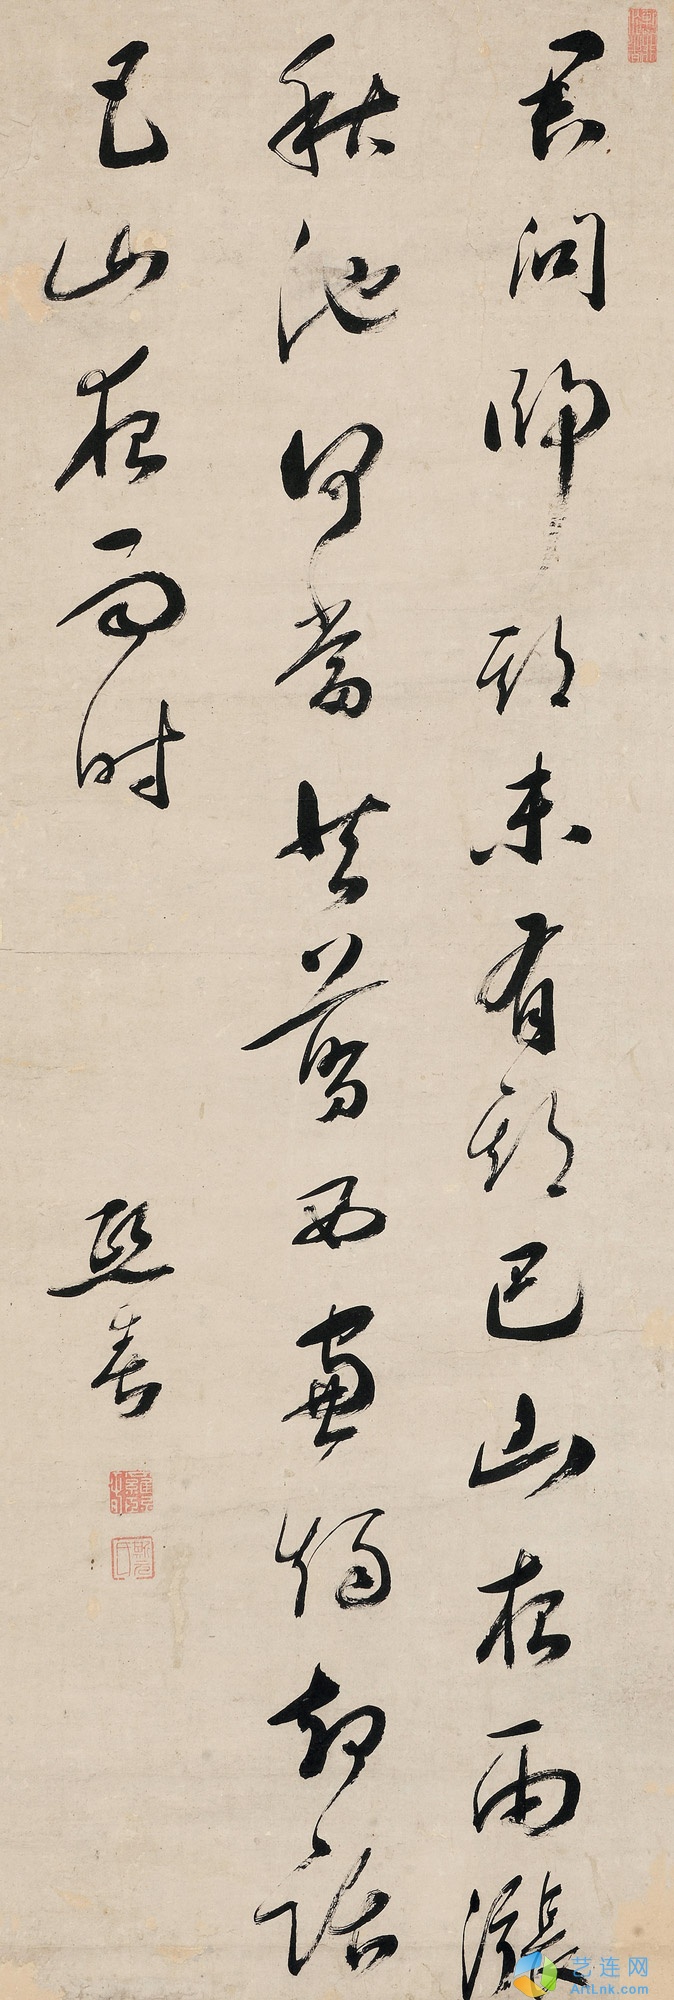 君问归期未有期巴山夜雨漲
秋池何當共剪西窗燭却話
巴山夜雨时
熙春
艺连网
ArtLnk.com